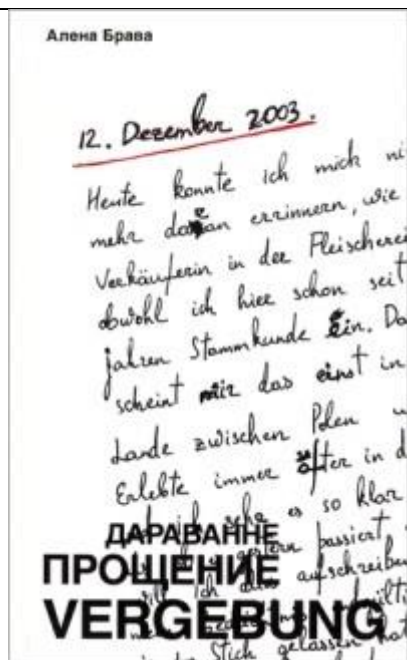 Алена Брава
12. Dezember 2003.
Heute konnte ich mich ni
mehr daran errinnern, wie
Verkäuferin in der Fleischerei
obwohl ich hier schon seit
jahren Stammkunde bin. Da
scheint mir das einst in
Lande zwischen Polen u
Erlebte immer öfter in d
ich sehe es so klar
ДАРАВАННЕ
gestern passiert
ПРОЩЕНИЕ
Ich aufschreiben
VERGEBUNG
Stich gelassen hat